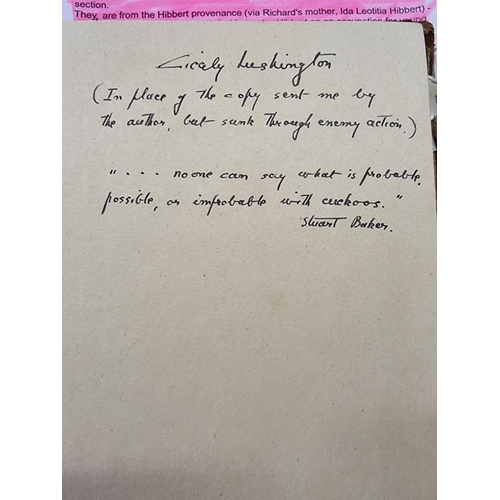 section.
They, are from the Hibbert provenance (via Richard's mother, Ida Leotitia Hibbert) -
Cicely Lushington
(In place of the copy sent me by
the author, but sunk through enemy action.)
". . . no one can say what is probable,
possible, or improbable with cuckoos."
Stuart Baker.